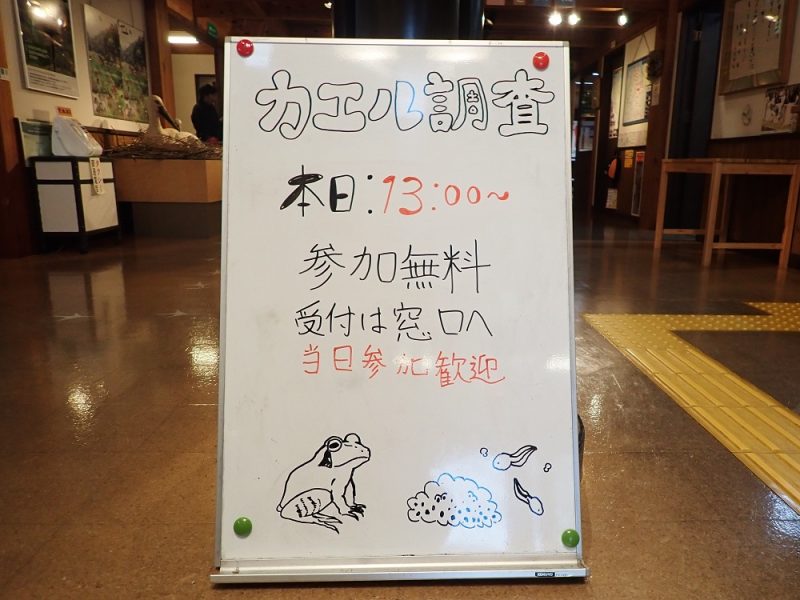 カエル調査
本日:13:00~
参加無料
受付は窓口へ
当日参加歓迎